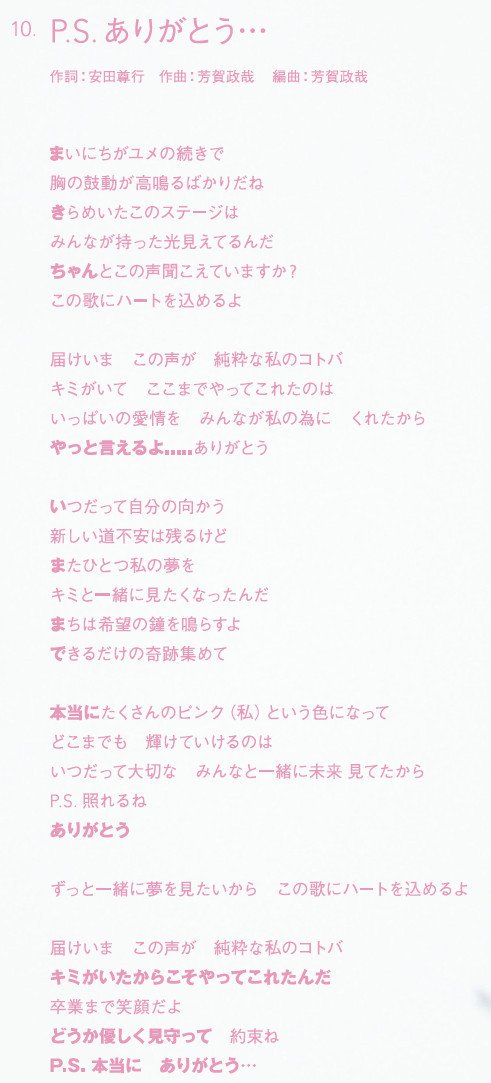 10. P.S. ありがとう…
作詞：安田尊行　作曲：芳賀政哉　編曲：芳賀政哉
まいにちがユメの続きで
胸の鼓動が高鳴るばかりだね
きらめいたこのステージは
みんなが持った光見えてるんだ
ちゃんとこの声聞こえていますか？
この歌にハートを込めるよ
届けいま　この声が　純粋な私のコトバ
キミがいて　ここまでやってこれたのは
いっぱいの愛情を　みんなが私の為に　くれたから
やっと言えるよ.....ありがとう
いつだって自分の向かう
新しい道不安は残るけど
またひとつ私の夢を
キミと一緒に見たくなったんだ
まちは希望の鐘を鳴らすよ
できるだけの奇跡集めて
本当にたくさんのピンク（私）という色になって
どこまでも　輝けていけるのは
いつだって大切な　みんなと一緒に未来 見てたから
P.S. 照れるね
ありがとう
ずっと一緒に夢を見たいから　この歌にハートを込めるよ
届けいま　この声が　純粋な私のコトバ
キミがいたからこそやってこれたんだ
卒業まで笑顔だよ
どうか優しく見守って　約束ね
P.S. 本当に　ありがとう…